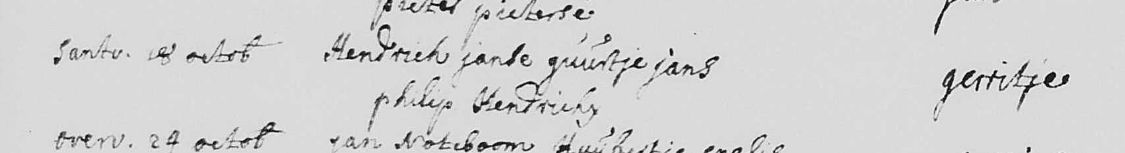 pieter pieterse
santv. 18 octob Hendrich janse guurtje jans gerritje
philip Hendrichs
overv. 24 octob jan Noteboom